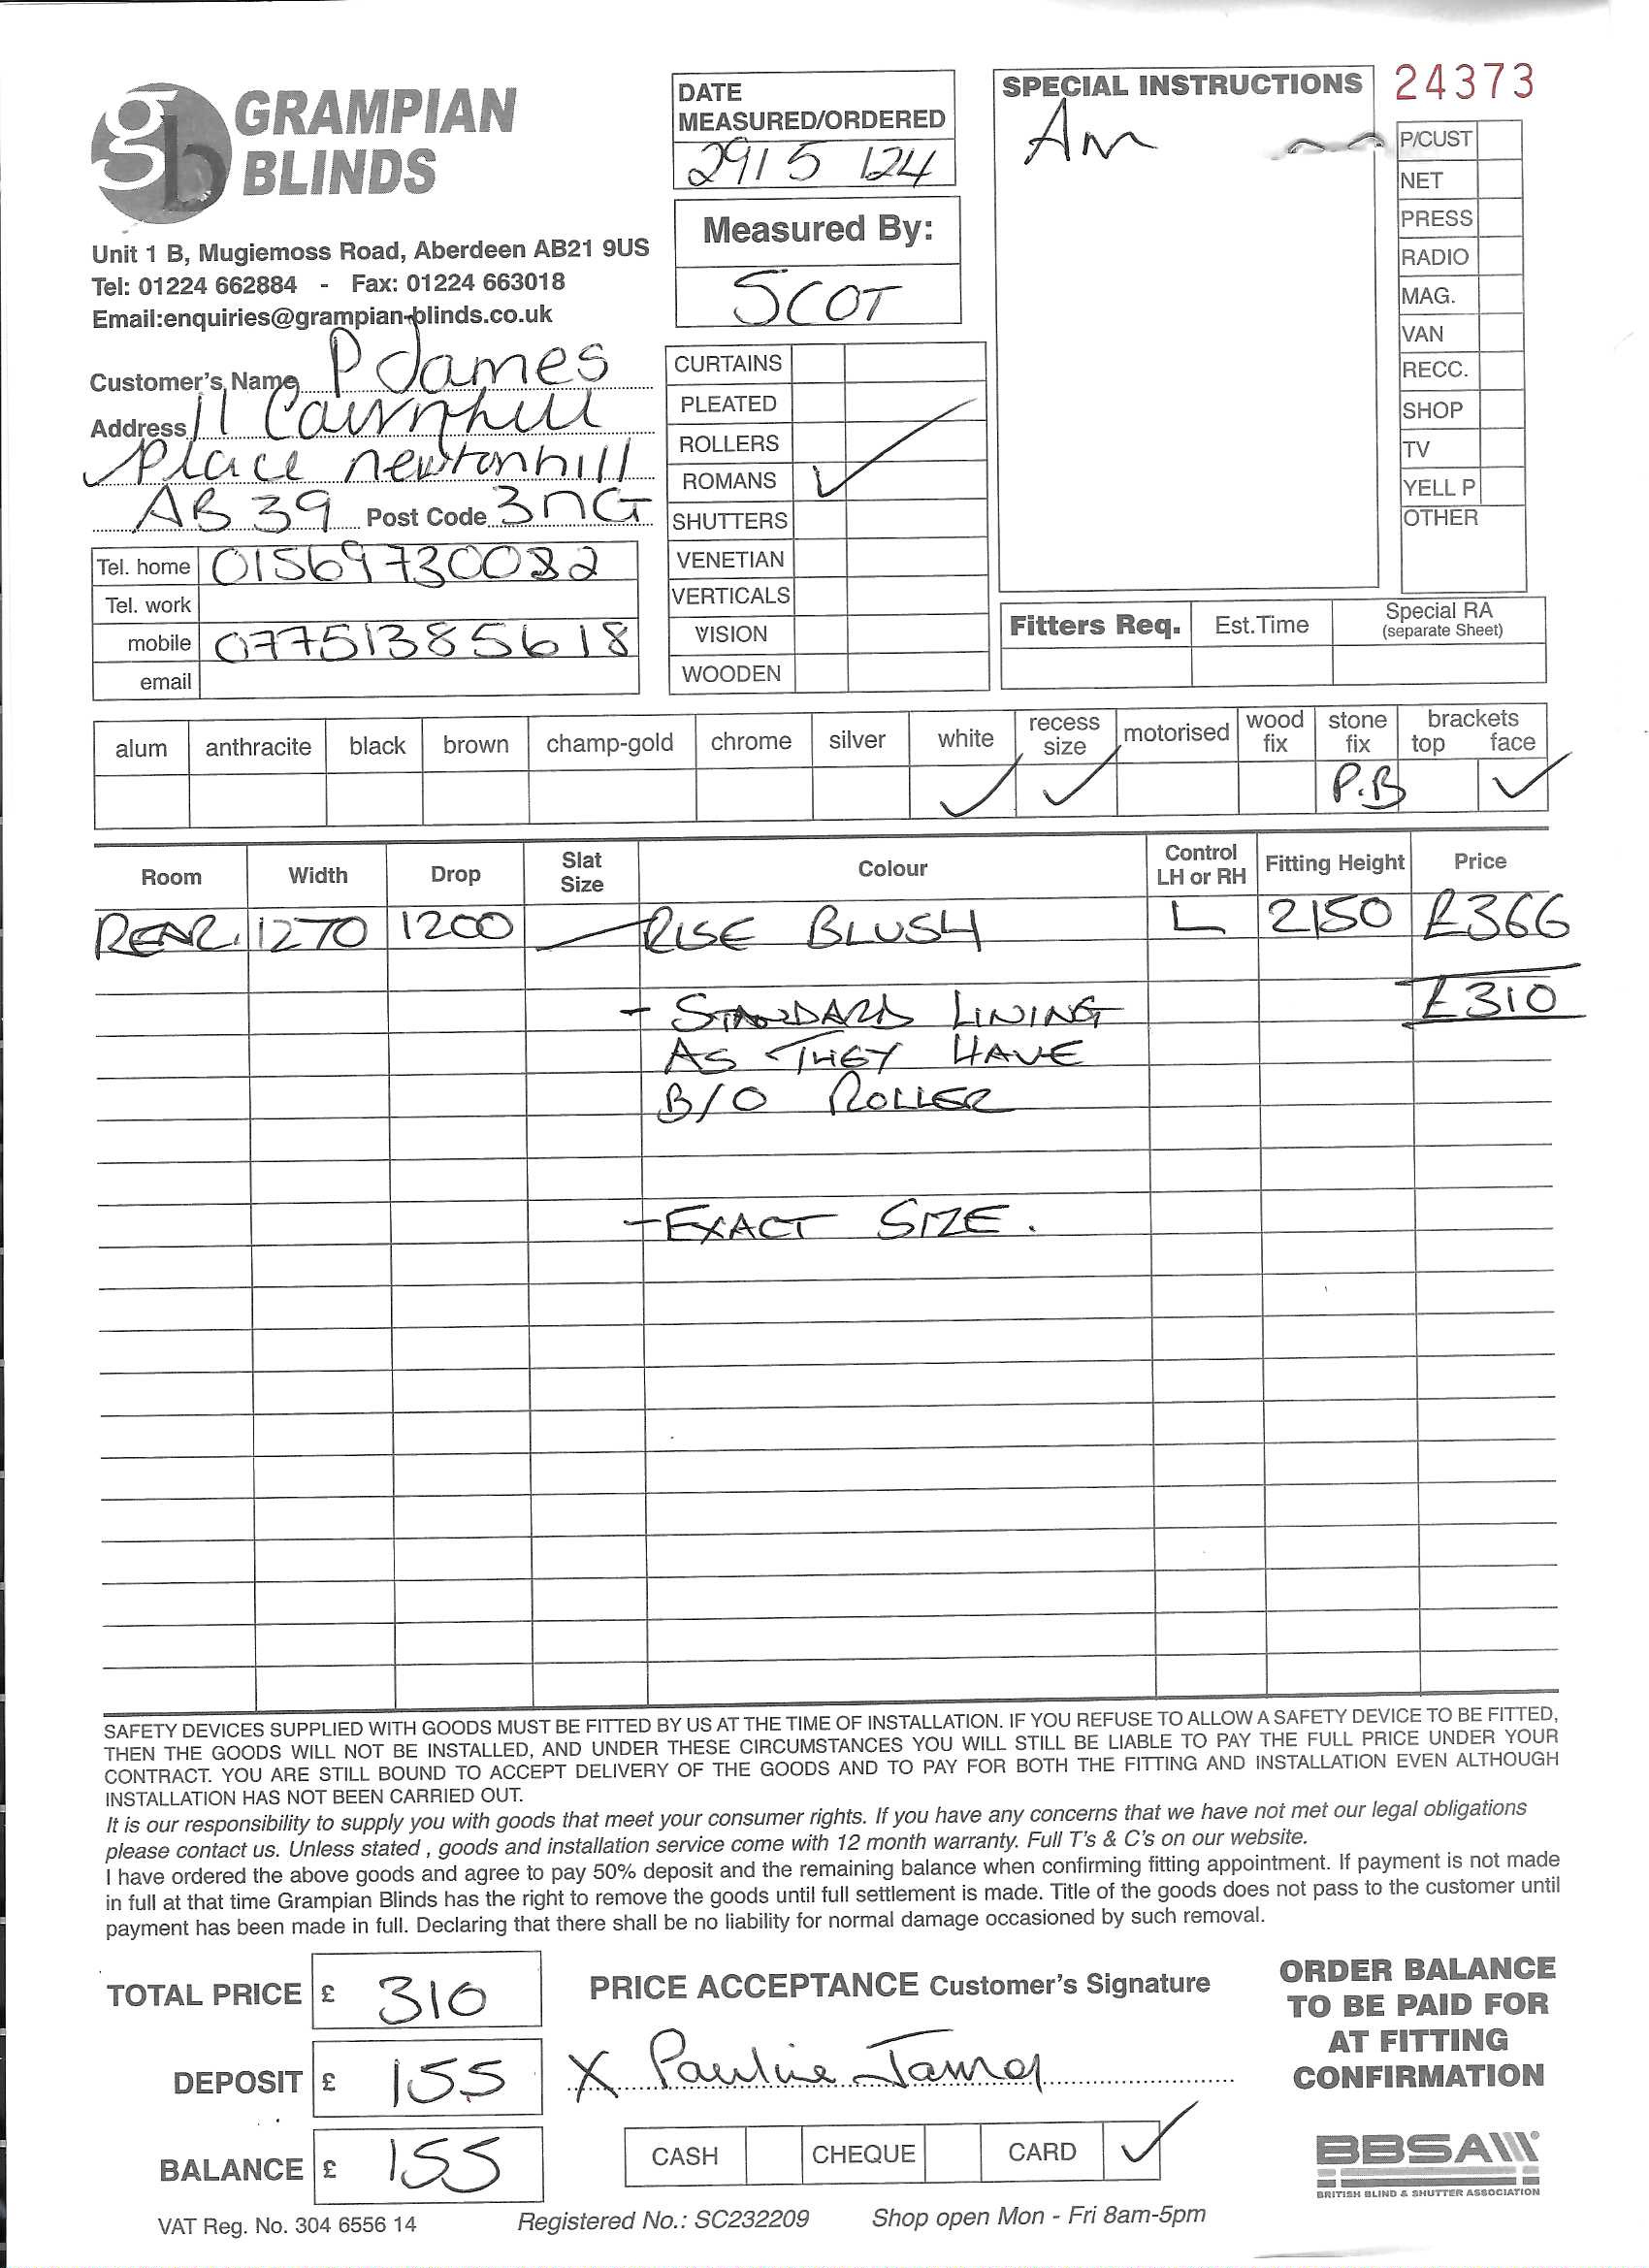 GRAMPIAN
BLINDS
Unit 1 B, Mugiemoss Road, Aberdeen AB21 9US
Tel: 01224 662884 - Fax: 01224 663018
Email:enquiries@grampian-blinds.co.uk
Customer's Name P James
Address 11 Cairnhill
Place newtonhill
AB 39 Post Code 3NG
Tel. home 01569730082
Tel. work
mobile 07751385618
email
DATE
MEASURED/ORDERED
29/5/24
Measured By:
SCOT
CURTAINS
PLEATED
ROLLERS
ROMANS ✓
SHUTTERS
VENETIAN
VERTICALS
VISION
WOODEN
SPECIAL INSTRUCTIONS
Am
24373
P/CUST
NET
PRESS
RADIO
MAG.
VAN
RECC.
SHOP
TV
YELL P
OTHER
Fitters Req. Est.Time Special RA
(separate Sheet)
alum anthracite black brown champ-gold chrome silver white recess size motorised wood fix stone fix brackets top face
✓ ✓ P.B ✓
Room Width Drop Slat Size Colour Control LH or RH Fitting Height Price
REAR. 1270 1200 — RISE BLUSH L 2150 £366
- STANDARD LINING £310
AS THEY HAVE
B/O ROLLER
- EXACT SIZE.
SAFETY DEVICES SUPPLIED WITH GOODS MUST BE FITTED BY US AT THE TIME OF INSTALLATION. IF YOU REFUSE TO ALLOW A SAFETY DEVICE TO BE FITTED,
THEN THE GOODS WILL NOT BE INSTALLED, AND UNDER THESE CIRCUMSTANCES YOU WILL STILL BE LIABLE TO PAY THE FULL PRICE UNDER YOUR
CONTRACT. YOU ARE STILL BOUND TO ACCEPT DELIVERY OF THE GOODS AND TO PAY FOR BOTH THE FITTING AND INSTALLATION EVEN ALTHOUGH
INSTALLATION HAS NOT BEEN CARRIED OUT.
It is our responsibility to supply you with goods that meet your consumer rights. If you have any concerns that we have not met our legal obligations
please contact us. Unless stated , goods and installation service come with 12 month warranty. Full T's & C's on our website.
I have ordered the above goods and agree to pay 50% deposit and the remaining balance when confirming fitting appointment. If payment is not made
in full at that time Grampian Blinds has the right to remove the goods until full settlement is made. Title of the goods does not pass to the customer until
payment has been made in full. Declaring that there shall be no liability for normal damage occasioned by such removal.
TOTAL PRICE £ 310
DEPOSIT £ 155
BALANCE £ 155
PRICE ACCEPTANCE Customer's Signature
X Pauline James
CASH CHEQUE CARD ✓
ORDER BALANCE
TO BE PAID FOR
AT FITTING
CONFIRMATION
BBSA
BRITISH BLIND & SHUTTER ASSOCIATION
VAT Reg. No. 304 6556 14 Registered No.: SC232209 Shop open Mon - Fri 8am-5pm